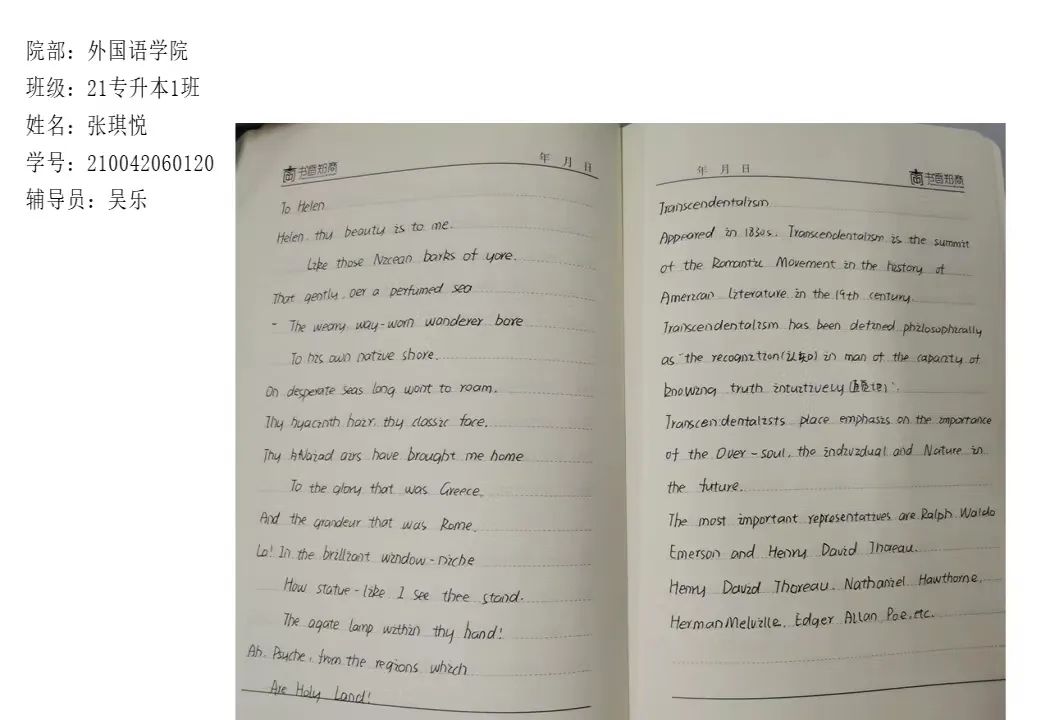 院部：外国语学院
班级：21专升本1班
姓名：张琪悦
学号：210042060120
辅导员：吴乐
书香知商
年 月 日
To Helen
Helen, thy beauty is to me.
Like those Nicean barks of yore.
That gently, oer a perfumed sea
- The weary way-worn wanderer bore
To his own native shore.
On desperate seas long wont to roam.
Thy hyacinth hair, thy classic face.
Thy Naiad airs have brought me home
To the glory that was Greece.
And the grandeur that was Rome.
Lo! In the brilliant window-niche
How statue-like I see thee stand.
The agate lamp within thy hand!
Ah, Psyche, from the regions which
Are Holy Land!
年 月 日
书香知商
Transcendentalism
Appeared in 1830s, Transcendentalism is the summit
of the Romantic Movement in the history of
American literature in the 19th century.
Transcendentalism has been defined philosophically
as "the recognition(认知) in man of the capacity of
knowing truth intuitively(直觉地)".
Transcendentalists place emphasis on the importance
of the Over-soul, the individual and Nature in
the future.
The most important representatives are Ralph Waldo
Emerson and Henry David Thoreau.
Henry David Thoreau, Nathaniel Hawthorne,
Herman Melville, Edger Allan Poe, etc.